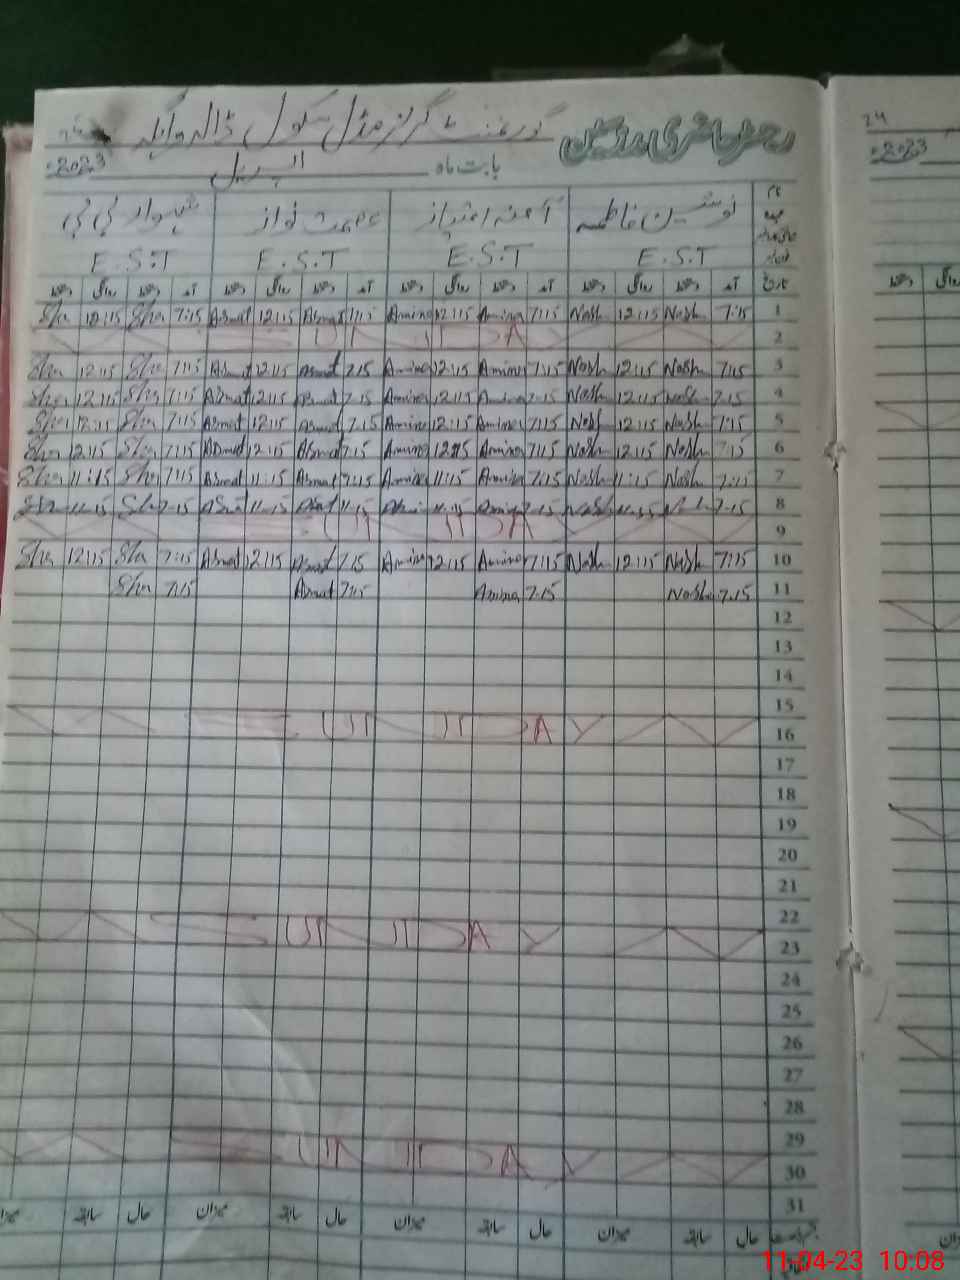 رجسٹر حاضری مدرسین گورنمنٹ گرلز مڈل سکول
بابت ماہ اپریل 2023
نام نوشین فاطمہ آمنہ امتیاز عصمت نواز بی بی
عہدہ E.S.T E.S.T E.S.T E.S.T
تاریخ آمد دستخط روانگی دستخط آمد دستخط روانگی دستخط آمد دستخط روانگی دستخط آمد دستخط روانگی دستخط
1 7:15 Nosh 12:15 Nosh 7:15 Amina 12:15 Amina 7:15 Asmat 12:15 Asmat 7:15 Sha 12:15 Sha
2 SUNDAY
3 7:15 Nosh 12:15 Nosh 7:15 Amina 12:15 Amina 7:15 Asmat 12:15 Asmat 7:15 Sha 12:15 Sha
4 7:15 Nosh 12:15 Nosh 7:15 Amina 12:15 Amina 7:15 Asmat 12:15 Asmat 7:15 Sha 12:15 Sha
5 7:15 Nosh 12:15 Nosh 7:15 Amina 12:15 Amina 7:15 Asmat 12:15 Asmat 7:15 Sha 12:15 Sha
6 7:15 Nosh 12:15 Nosh 7:15 Amina 12:15 Amina 7:15 Asmat 12:15 Asmat 7:15 Sha 12:15 Sha
7 7:15 Nosh 11:15 Nosh 7:15 Amina 11:15 Amina 7:15 Asmat 11:15 Asmat 7:15 Sha 11:15 Sha
8 7:15 Nosh 7:15 Amina 11:15 11:15 Asmat 11:15 Asmat 7:15 Sha 11:15 Sha
9 SUNDAY
10 7:15 Nosh 12:15 Nosh 7:15 Amina 12:15 Amina 7:15 Asmat 12:15 Asmat 7:15 Sha 12:15 Sha
11 7:15 Nosh 7:15 Amina 7:15 Asmat 7:15 Sha
12
13
14
15
16 SUNDAY
17
18
19
20
21
22
23 SUNDAY
24
25
26
27
28
29
30 SUNDAY
31
حال سابقہ میزان حال سابقہ میزان حال سابقہ میزان حال سابقہ میزان
24
2023
11-04-23 10:08